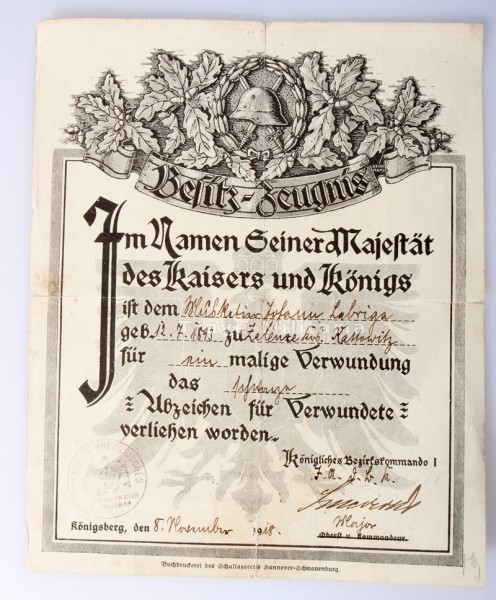 Besitz-Zeugnis
Im Namen Seiner Majestät
des Kaisers und Königs
ist dem Musketier Johann Labriga
geb. 12.7.1893 zu Zalenze Krs. Kattowitz
für ein malige Verwundung
das schwarze
Abzeichen für Verwundete
verliehen worden.
Königliches Bezirkskommando I
Major
Oberst u. Kommandeur.
Königsberg, den 8. November 1918.
Buchdruckerei des Schullazaretts Hannover-Schwanenburg.